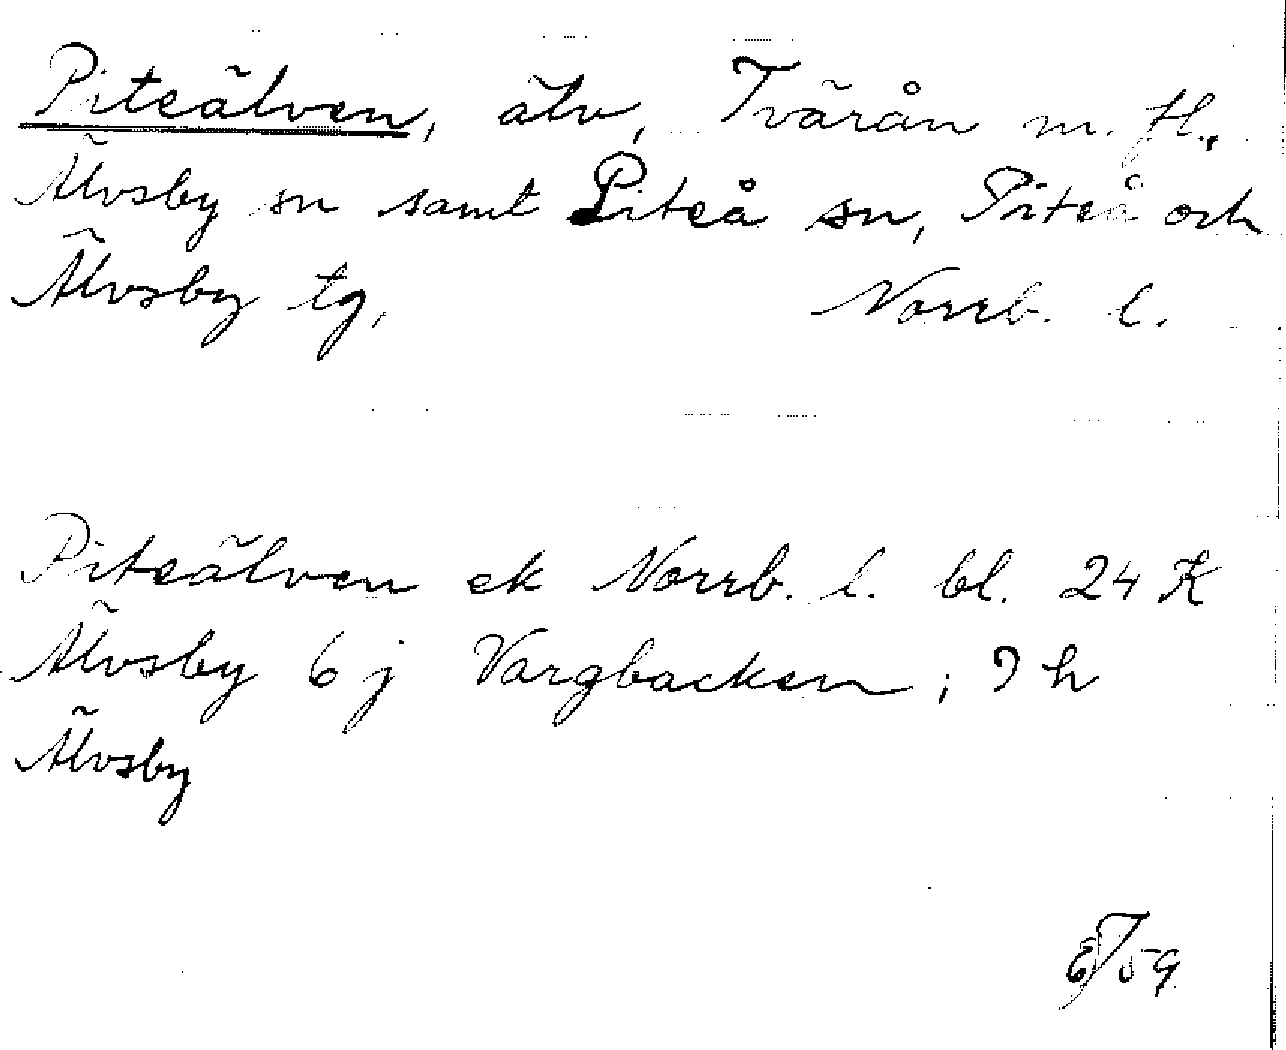 Piteälven, älv, Tvärån m. fl.,
Älvsby sn samt Piteå sn, Piteå och
Älvsby tg, Norrb. l.
Piteälven ek Norrb. l. bl. 24 K
Älvsby 6 j Vargbacken; 9 h
Älvsby
ET 59